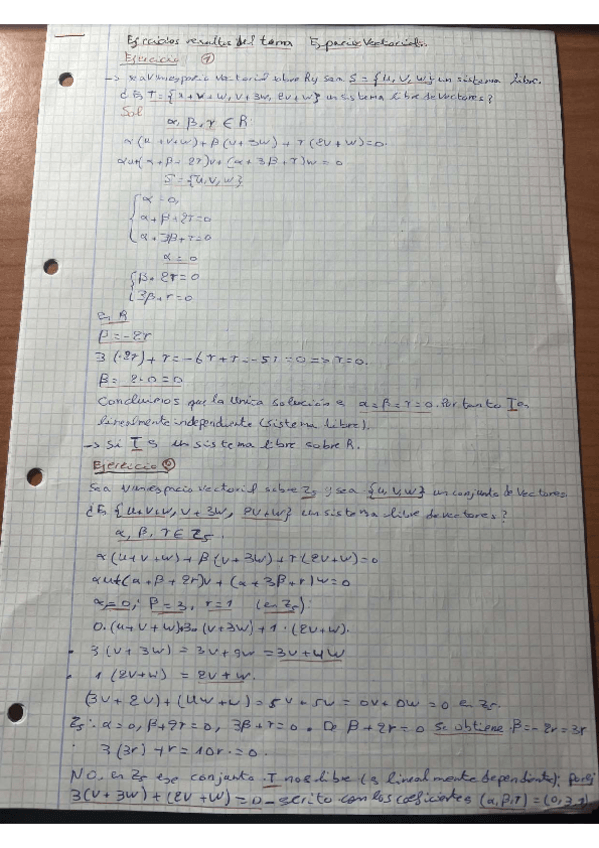 Ejercicios resueltos del tema Espacio Vectorial.
Ejercicio 1
→ sea V un espacio vectorial sobre R y sea S = {u, v, w} un sistema libre.
¿Es T = {u+v+w, v+3w, 2v+w} un sistema libre de vectores?
Sol
α, β, r ∈ R
α(u+v+w) + β(v+3w) + r(2v+w) = 0.
αu+(α+β+2r)v + (α+3β+r)w = 0
S = {u, v, w}
{α = 0,
α+β+2r=0
α+3β+r=0
α = 0
{β+2r=0
3β+r=0
En R
β = -2r
3(-2r) + r = -6r + r = -5r = 0 => r = 0.
β = 2·0 = 0
Concluimos que la única solución es α = β = r = 0. Por tanto T es
linealmente independiente (sistema libre).
→ Si T es un sistema libre sobre R.
Ejercicio 2
Sea V un espacio vectorial sobre Z5 y sea {u, v, w} un conjunto de vectores
¿Es {u+v+w, v+3w, 2v+w} un sistema libre de vectores?
α, β, r ∈ Z5.
α(u+v+w) + β(v+3w) + r(2v+w) = 0
αu+(α+β+2r)v + (α+3β+r)w = 0
α = 0; β = 3, r = 1 (en Z5):
0·(u+v+w)+3·(v+3w) + 1·(2v+w).
· 3(v+3w) = 3v+9w = 3v+4w
· 1(2v+w) = 2v+w.
(3v+2v) + (4w+w) = 5v+5w = 0v+0w = 0 en Z5.
Z5: α = 0, β+2r = 0, 3β+r = 0. De β+2r = 0 se obtiene β = -2r = 3r
· 3(3r) + r = 10r = 0.
NO, en Z5 ese conjunto T no es libre (es linealmente dependiente);
3(v+3w) + (2v+w) = 0 - escrito con los coeficientes (α, β, r) = (0, 3, 1)